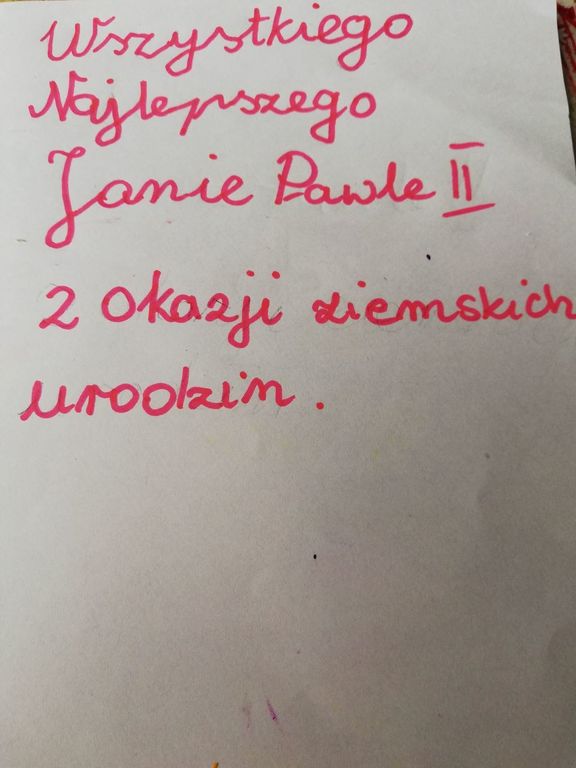 Wszystkiego
Najlepszego
Janie Pawle II
z okazji ziemskich
urodzin.